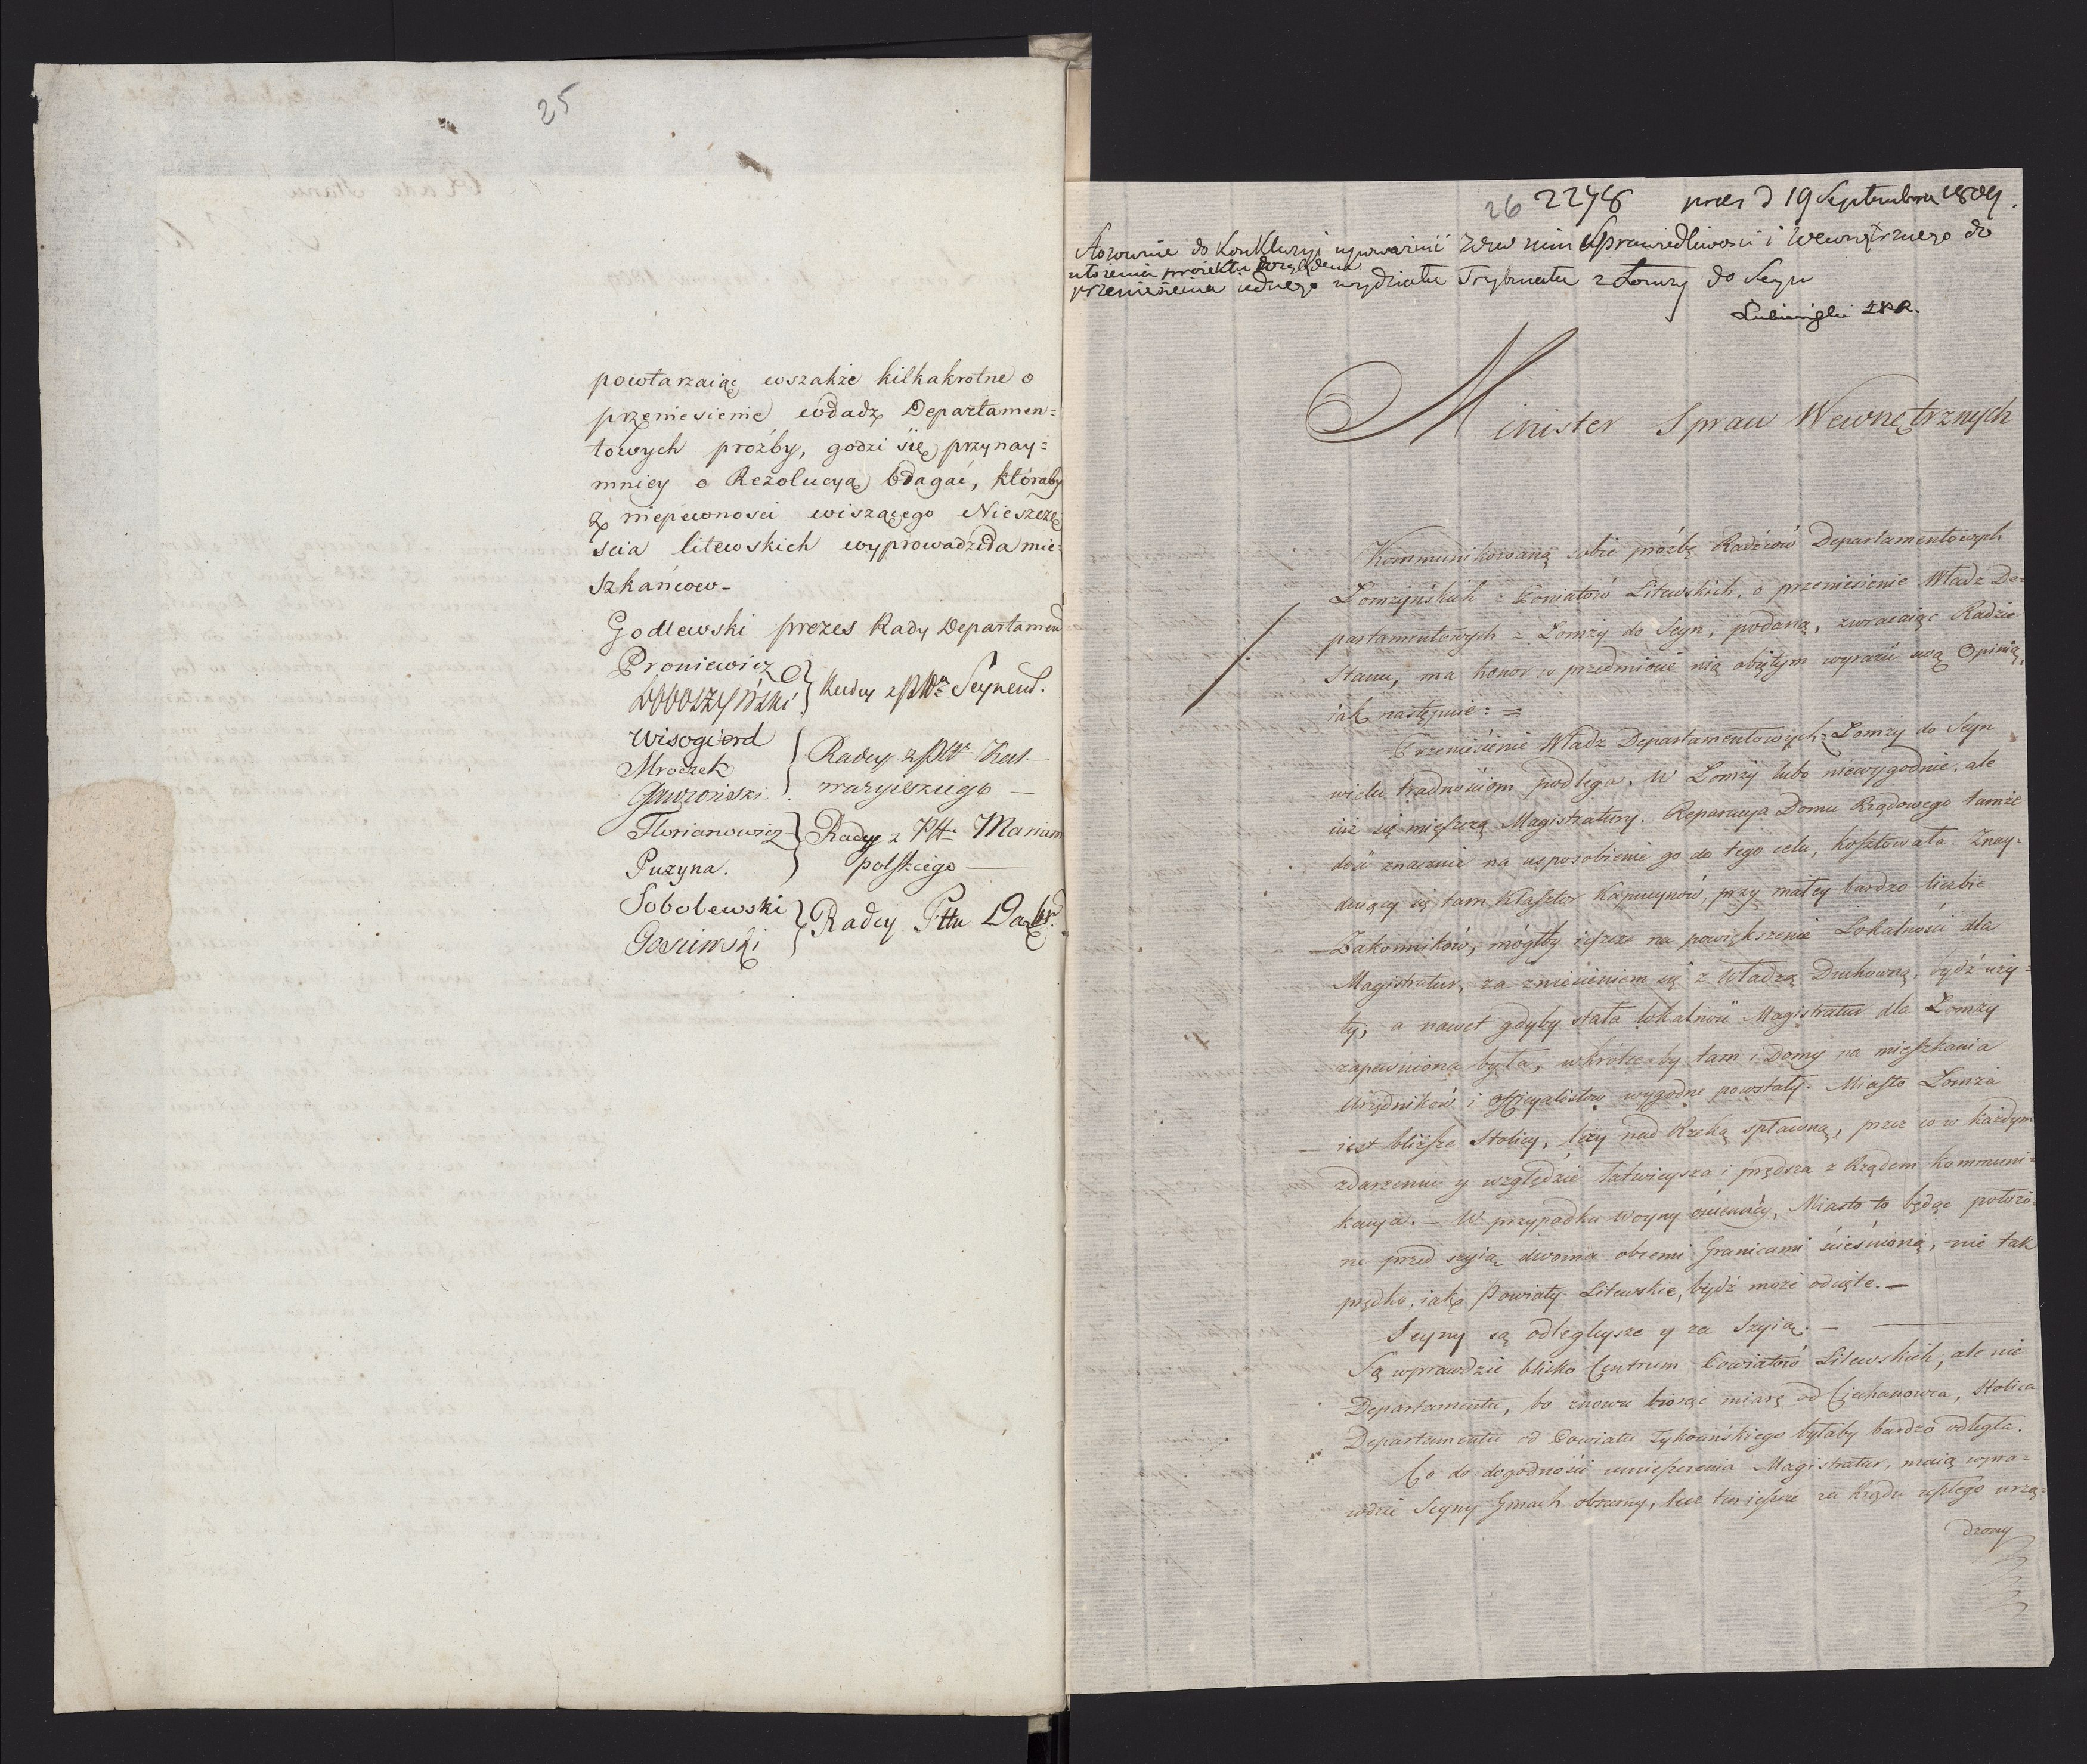 25
powtarzaiąc wszakże kilkakrotne o
przeniesienie władz Departamen=
towych proźby, godzi się przynay=
mniey o Rezolucyą błagać, któraby
z niepewnosci wiszącego Nieszczę=
scia litewskich wyprowadziła mie=
szkańcow-
Godlewski prezes Rady Departamen
Proniewicz
Radcy z Seynens.
Wisogierd
Mroczek
Radcy z Pttu Kal=
waryiskiego —
Florianowicz
Puzyna.
Radcy z Pttu Mariam
polskiego —
Sobolewski
Radcy Pttu Dąbr.
26 2278 prees d 19 Septembra 1809.
Stosownie do Konkluzyi upoważnić Sprawiedliwosci i Wewnętrznego do
ułożenia proiektu względem
przeniesienia iednego wydziału Trybunału z Łomży do Seyn
Minister Spraw Wewnętrznych
Kommunikowaną sobie proźbę Radzców Departamentowych
Łomżyńskich z Powiatów Litewskich, o przeniesienie Władz De=
partamentowych z Łomży do Seyn, podaną, zwracaiąc Radzie
Stanu, ma honor w przedmiocie nią obiętym wyrazić swą Opinią,
iak następuie: =
Przeniesienie Władz Departamentowych z Łomży do Seyn
wielu trudnościom podlega. W Łomży lubo niewygodnie, ale
iuż się mieszczą Magistratury. Reparacya Domu Rządowego tamże
dość znacznie na usposobienie go do tego celu, kosztowała. Znay=
duiący się tam Klasztor Kapucynów, przy małey bardzo liczbie
Zakonników, mógłby ieszcze na powiększenie Lokalności dla
Magistratur, za zniesieniem się z Władzą Duchowną, bydź uży=
ty, a nawet gdyby stała lokalność Magistratur dla Łomży
zapewniona była, wkrótce by tam i Domy na mieszkania
Urzędników i Officyalistów wygodne powstały. Miasto Łomża
iest bliższe Stolicy, leży nad Rzeką spławną, przez co w każdym
zdarzeniu y względzie łatwieysza i prędsza z Rządem kommuni=
kacya. — W przypadku woyny Miasto to będąc położo=
ne przed szyią dwoma obcemi Granicami ścieśnioną, nie tak
prędko, iak Powiaty Litewskie, bydź może odcięte. —
Seyny są odlegleysze y za Szyią. —
Są wprawdzie blisko Centrum Powiatów Litewskich, ale nie
Departamentu, bo znowu biorąc miarę od Ciechanowca, Stolica
Departamentu od Powiatu Tykocińskiego byłaby bardzo odległa.
Co do dogodności umieszczenia Magistratur, maią wpra=
wdzie Seyny Gmach obszerny, lecz ten ieszcze za Rządu zeszłego urzą=
dzony